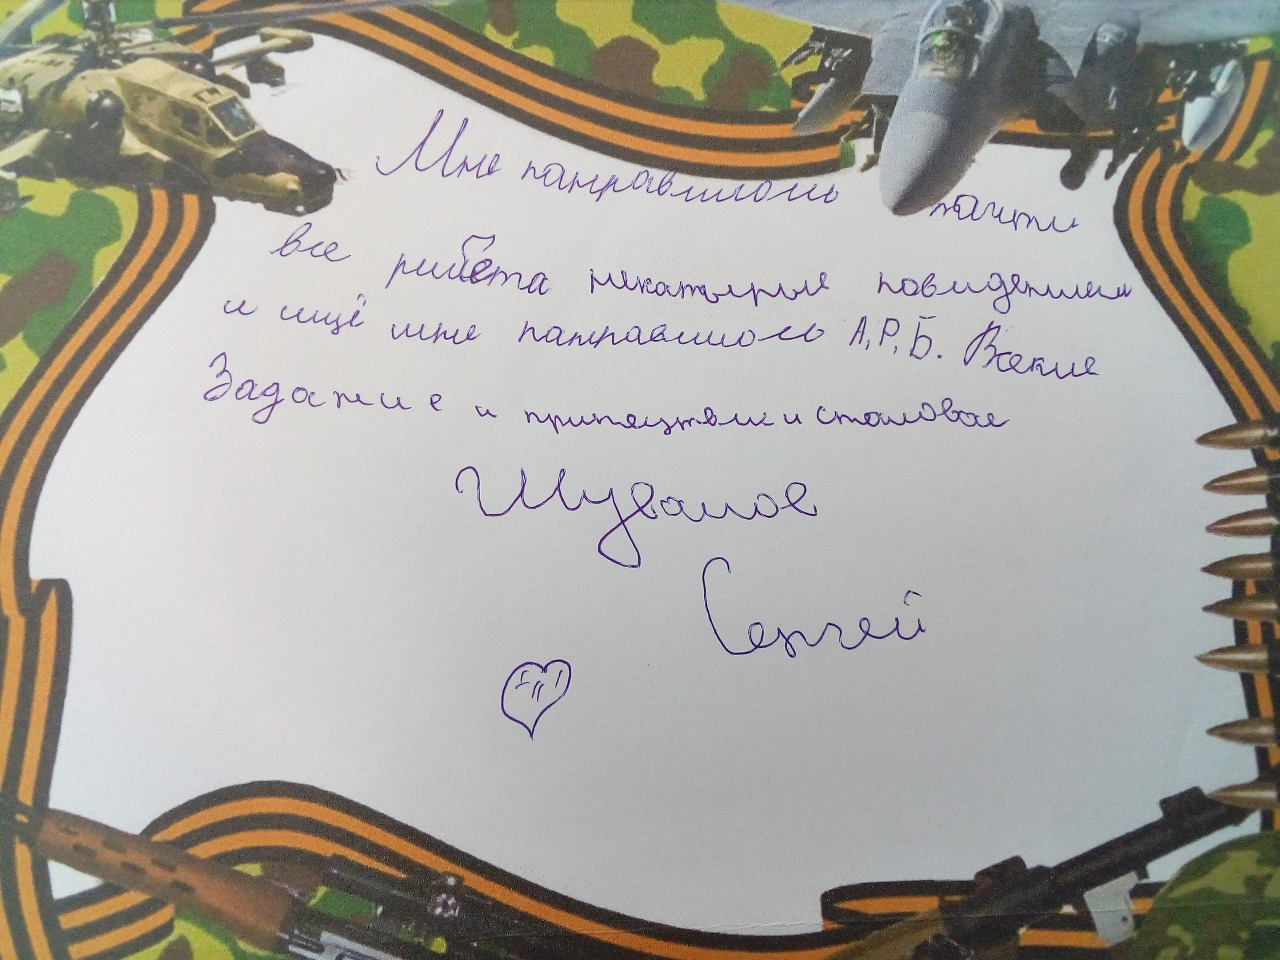 Мне панравилось пачти
все рибета некатырые повидением
и ищё мне панравилось А,Р,Б. Всякие
Задание и припятвеи и сталовое
Шувалов
Сергей